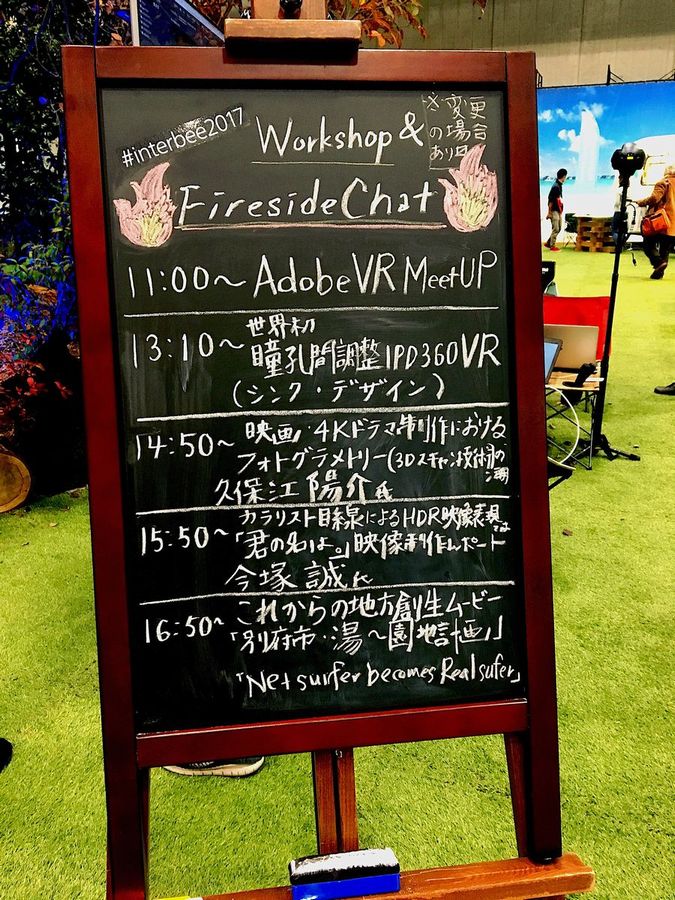 #interbee2017
Workshop &
※変更
の場合
あり
Fireside Chat
11:00～ Adobe VR MeetUP
13:10～ 世界初
瞳孔間調整 IPD360VR
(シンク・デザイン)
14:50～ 映画・4Kドラマ制作における
フォトグラメトリー(3Dスキャン技術)の
久保江 陽介氏
15:50～ カラリスト目線によるHDR映像表現
「君の名は。」映像制作レポート
今塚 誠氏
16:50～ これからの地方創生ムービー
「別府市・湯～園地計画!」
「Net surfer becomes Real sufer」